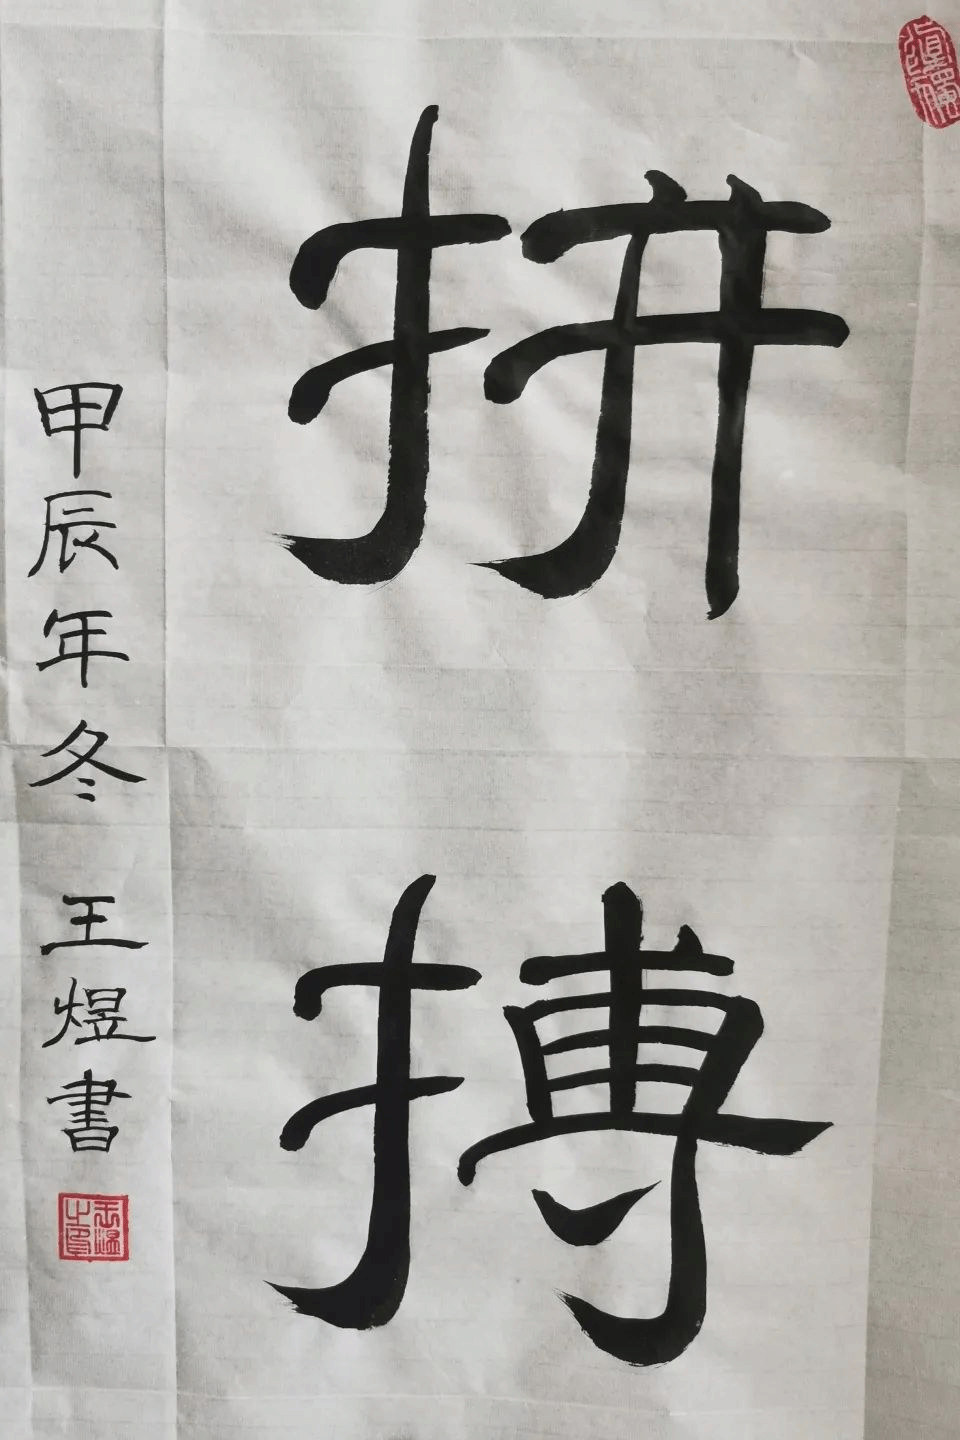 拼搏
甲辰年冬 王煜書